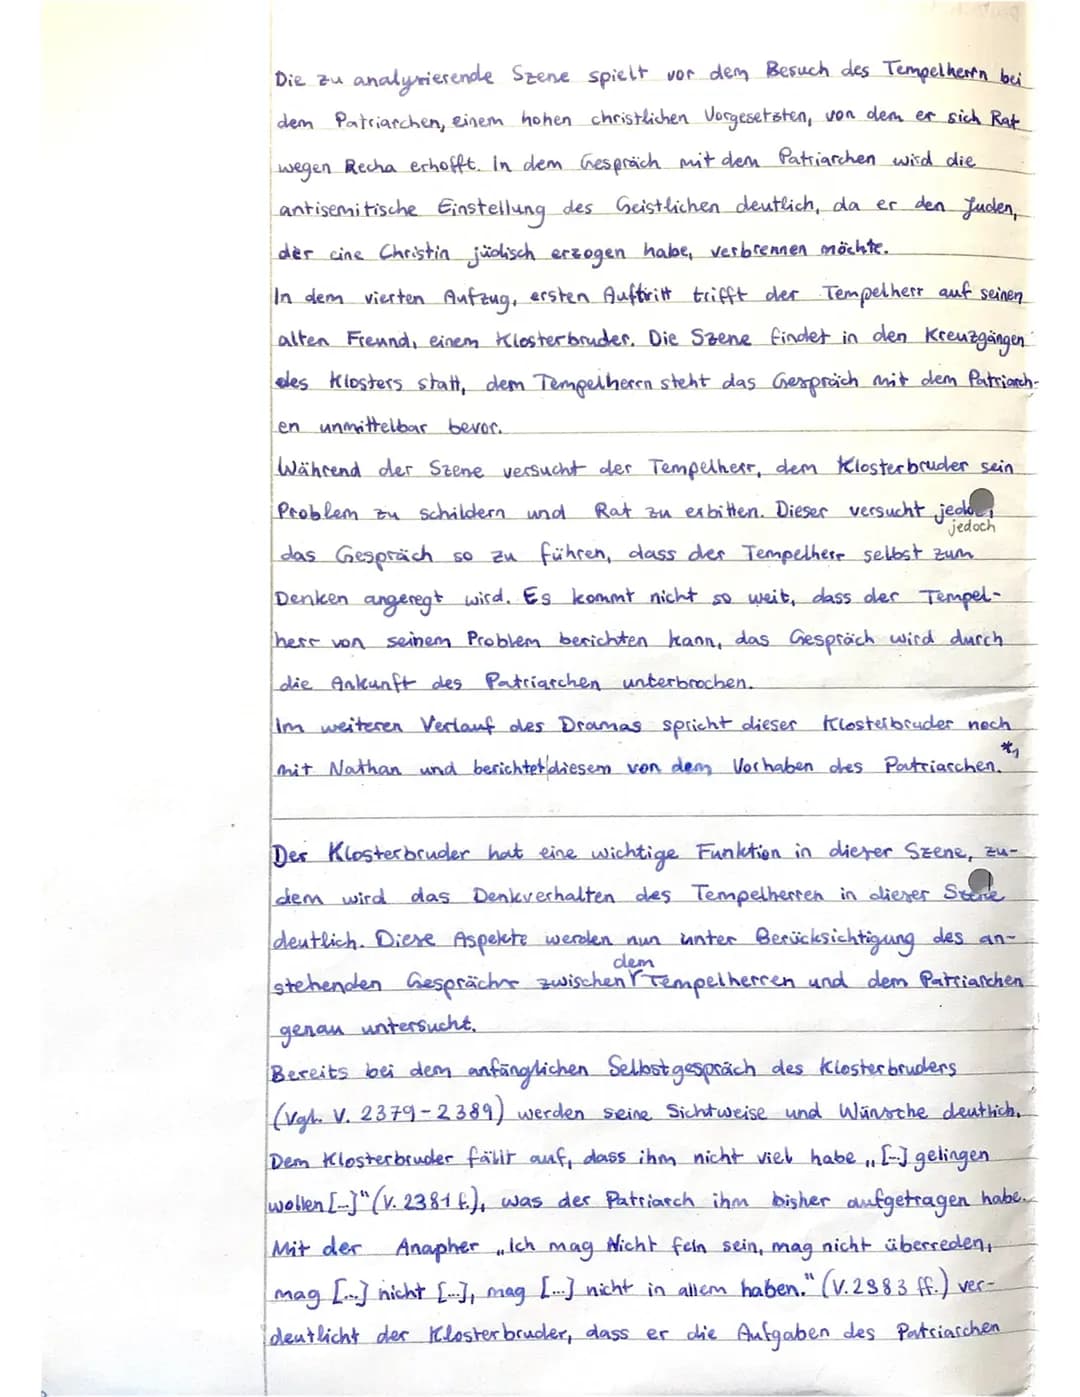 Die zu analysierende Szene spielt vor dem Besuch des Tempelherrn bei
dem Patriarchen, einem hohen christlichen Vorgesetzten, von dem er sich Rat
wegen Recha erhofft. In dem Gespräch mit dem Patriarchen wird die
antisemitische Einstellung des Geistlichen deutlich, da er den Juden,
der eine Christin jüdisch erzogen habe, verbrennen möchte.
In dem vierten Aufzug, ersten Auftritt trifft der Tempelherr auf seinen
alten Freund, einem Klosterbruder. Die Szene findet in den Kreuzgängen
des Klosters statt, dem Tempelherrn steht das Gespräch mit dem Patriarch-
en unmittelbar bevor.
Während der Szene versucht der Tempelherr, dem Klosterbruder sein
Problem zu schildern und Rat zu erbitten. Dieser versucht
jedoch
das Gespräch so zu führen, dass der Tempelherr selbst zum
Denken angeregt wird. Es kommt nicht so weit, dass der Tempel-
herr von seinem Problem berichten kann, das Gespräch wird durch
die Ankunft des Patriarchen unterbrochen.
Im weiteren Verlauf des Dramas spricht dieser Klosterbruder noch
mit Nathan und berichtet diesem von dem Vorhaben des Patriarchen. *1
Der Klosterbruder hat eine wichtige Funktion in dieser Szene, zu-
dem wird das Denkverhalten des Tempelherren in dieser Szene
deutlich. Diese Aspekte werden nun unter Berücksichtigung des an-
dem
stehenden Gesprächs zwischen Tempelherren und dem Patriarchen
genau untersucht.
Bereits bei dem anfänglichen Selbstgespräch des Klosterbruders
(Vgl. V. 2379-2389) werden seine Sichtweise und Wünsche deutlich.
Dem Klosterbruder fällt auf, dass ihm nicht viel habe „[...] gelingen
wollen [...]" (V. 2381 f.), was der Patriarch ihm bisher aufgetragen habe.
Mit der Anapher „Ich mag Nicht fein sein, mag nicht überreden,
mag [...] nicht [...], mag [...] nicht in allem haben." (V. 2383 ff.) ver-
deutlicht der Klosterbruder, dass er die Aufgaben des Patriarchen